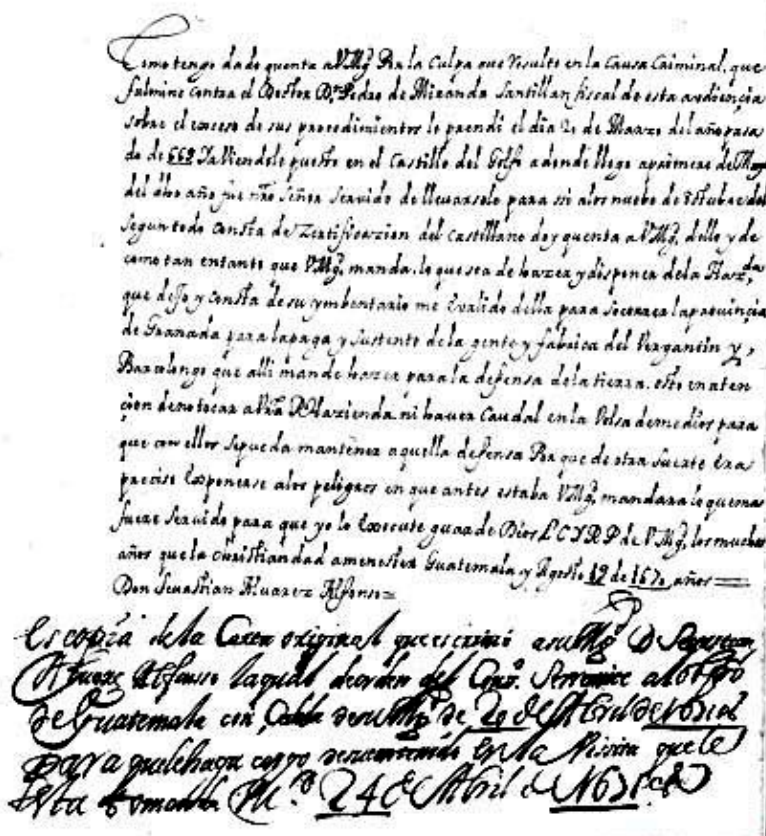 Como tengo dado quenta a VMg Por la Culpa que Resulto en la Causa Caiminal, que
fulmine Contra el Doctor Dn Pedro de Miranda Santillan fiscal de esta audiençia
sobre el exceso de sus procedimientos le prendi el dia 2 de Marzo del año pasa
do de 669 y aviendole puesto en el Castillo del Golfo adonde llego a primero de Mayo
del dho año fue nro Señor Servido de llevarselo para si a los nuebe de Octubre del
segun todo Consta de Zertificazion del Castellano doy quenta a VMg, dello y de
como tan entanto que VMg, manda, lo que sea de hazer y disponer de la Hazda
que dejo y Consta de su ymbentario me e valido della para Socorrer la provinçia
de Granada para la paga y Sustento de la gente y fabrica del Vergantin y,
Barcolongo que alli mande hazer para la defensa de la tierra, esto en aten
çion de no tocar a Vra Rl Hazienda, ni haver Caudal en la Volsa de medios para
que con ellos se pueda mantener aquella defensa Por que de otra Suerte era
preciso Exponerse a los peligros en que antes estaba VMg, mandara lo que mas
fuere Servido para que yo lo Execute guarde Dios L C Y R P de V Mg, los muchos
años que la Cristiandad a menester Guatemala y Agosto 19 de 1670 años
Don Sevastian Alvarez Alfonso
Es copia de la Carta original que escrivio a su Mg D Sevastian
Alvarez Alfonso la qual de orden del Conso. Se remite al obispo
de Guatemala con Cedula de su Mg de 20 de Abril de
para que le haga cargo en la Visita que le
esta Md 24 de Abril de